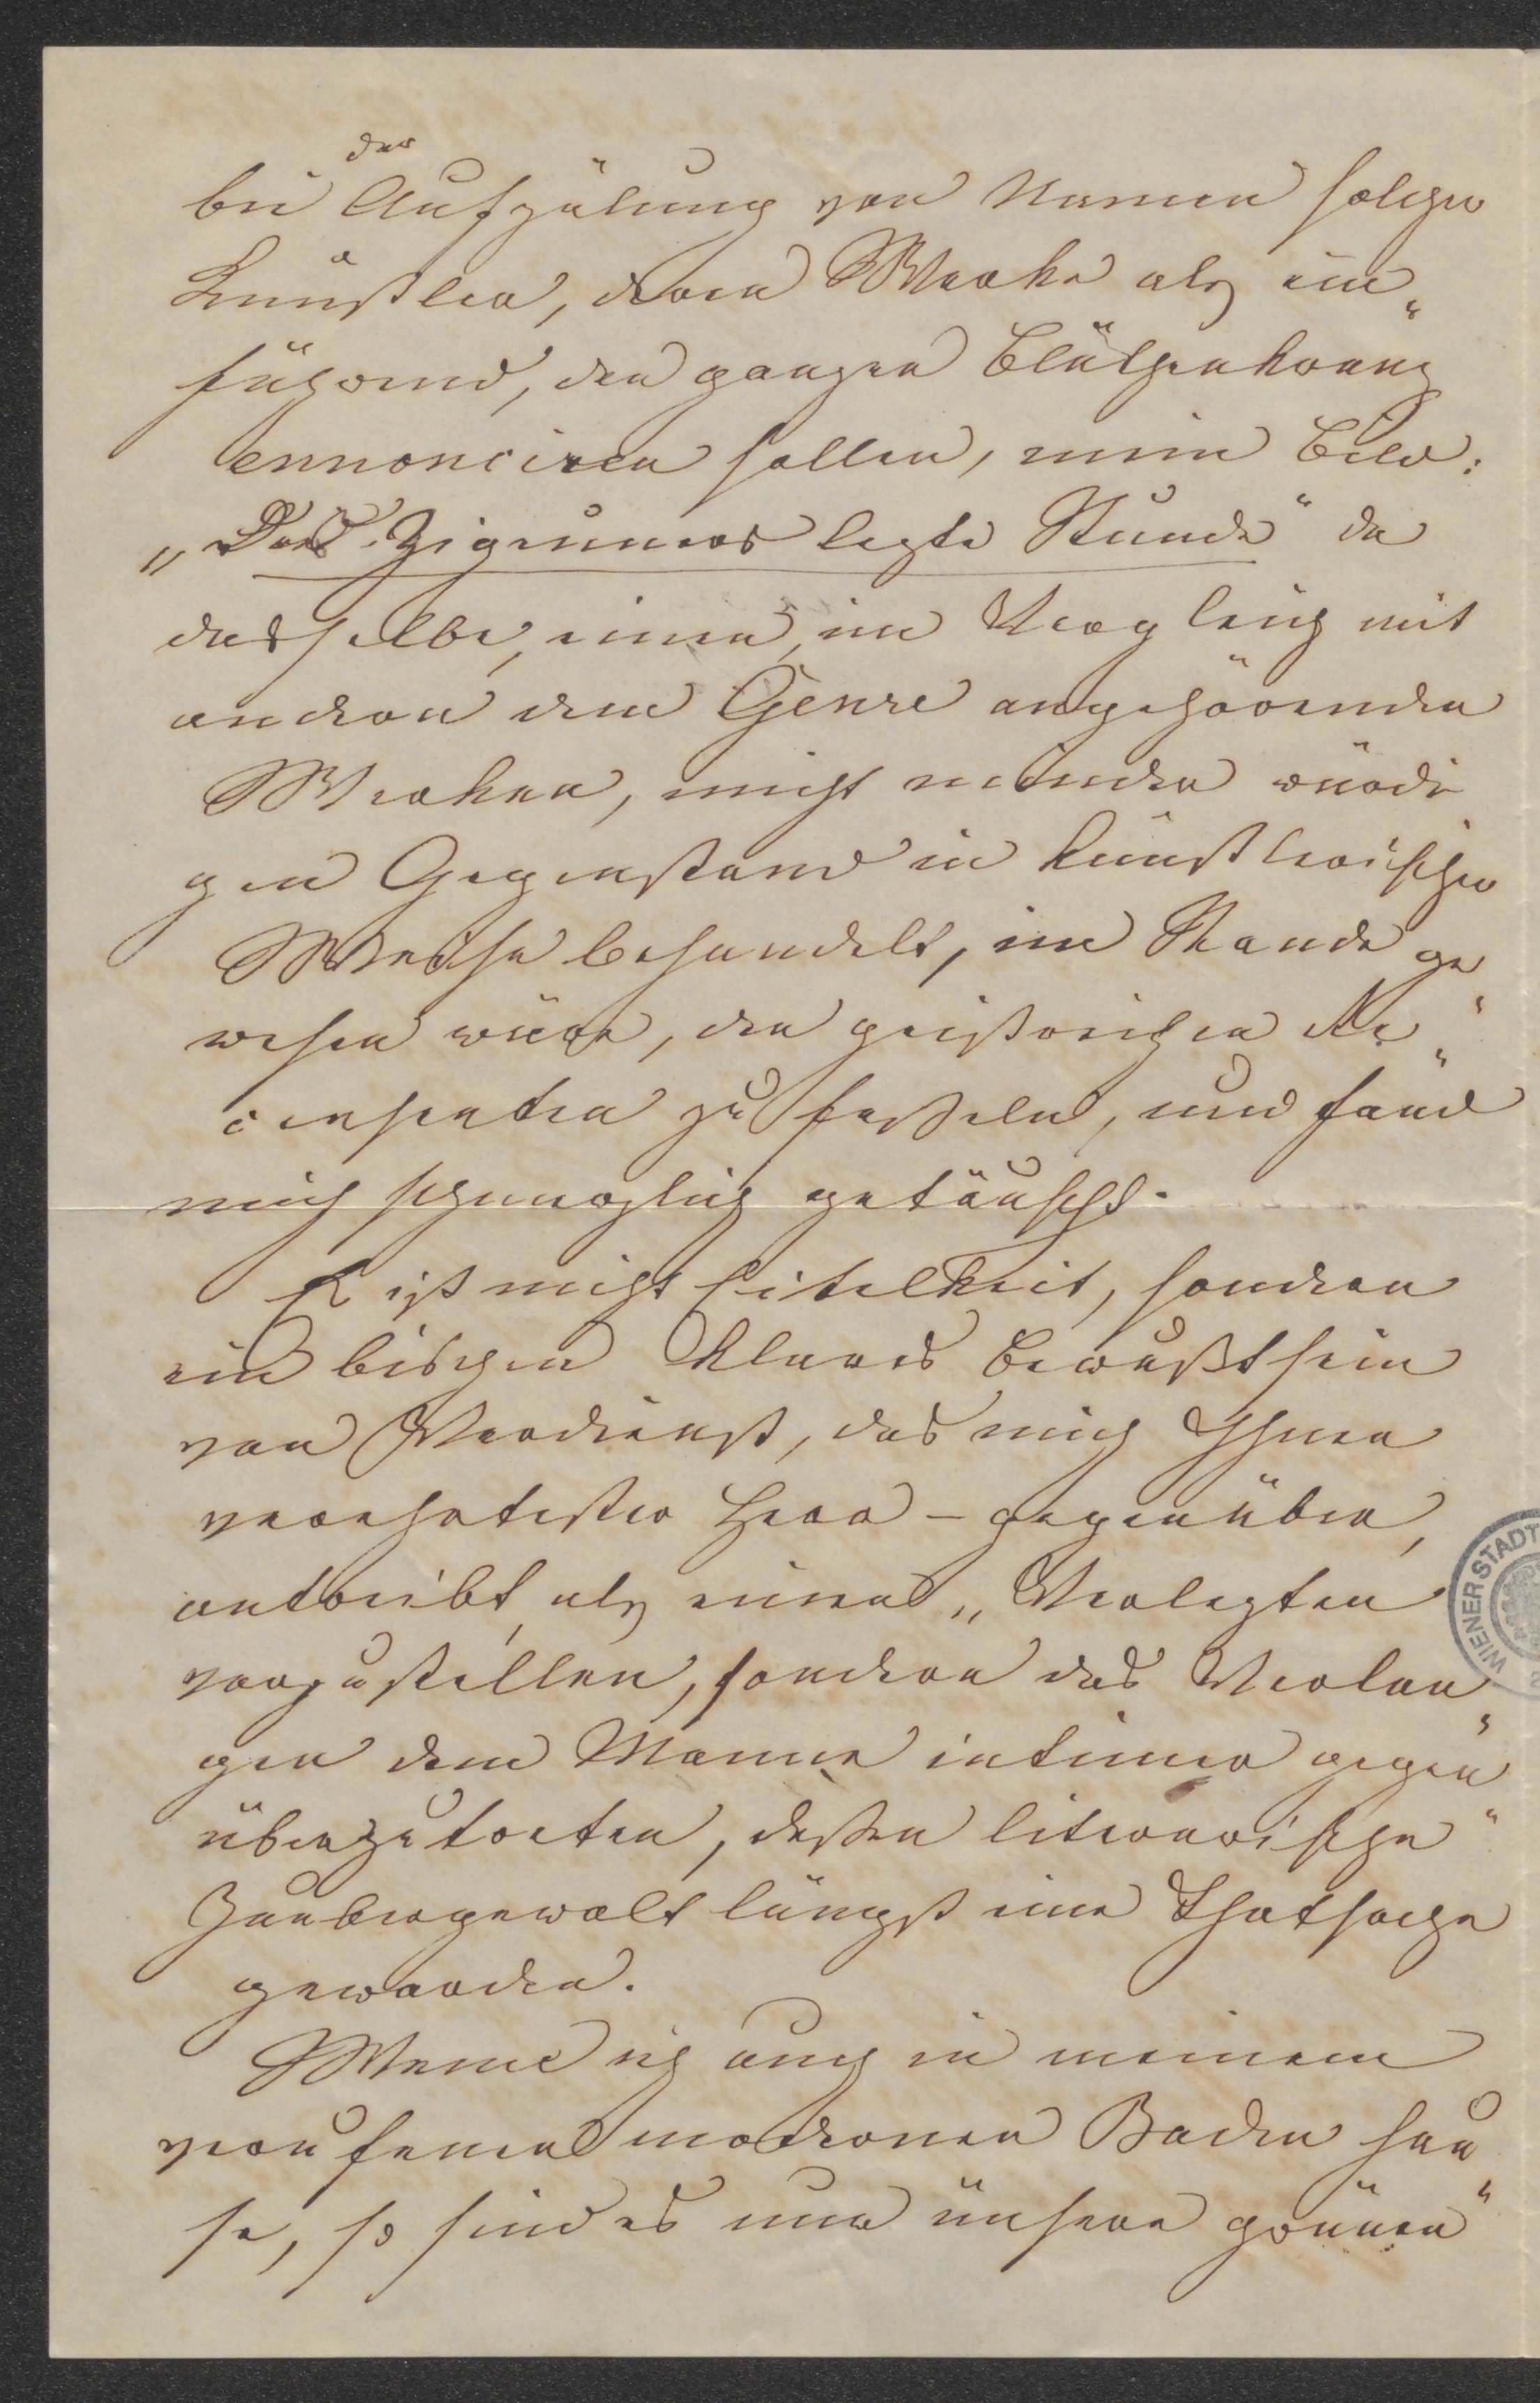 bei der Aufzälung von Namen solcher
Künstler, deren Werke als ein„
führend, den ganzen Blüthenkranz
ennonciren sollen, mein Bild:
„Des Zigeuners lezte Stunde“ da
dasselbe, einen, im Vergleich mit
andern dem Genre angehörenden
Werken, nicht minder würdi
gen Gegenstand in künstlerischer
Weise behandelt, im Stande ge
wesen wäre, den geistreichen Re„
censenten zu fesseln, und fand
mich schmerzlich getäuscht.
Es ist nicht Eitelkeit, sondern
ein bischen klares Bewußtsein
von Verdienst, das mich Ihnen
verehrtester Herr – gegenüber,
antreibt, als einen „Verlezten
vorzustellen, sondern das Verlan„
gen dem Manne intimer gegen„
überzutreten, dessen literarische
Zaubergewalt längst eine Thatsache
geworden.
Wenn ich auch in meinem
verrufenen modernen Baden hau„
se, so sind es nur unsere grünen
WIENER STADT